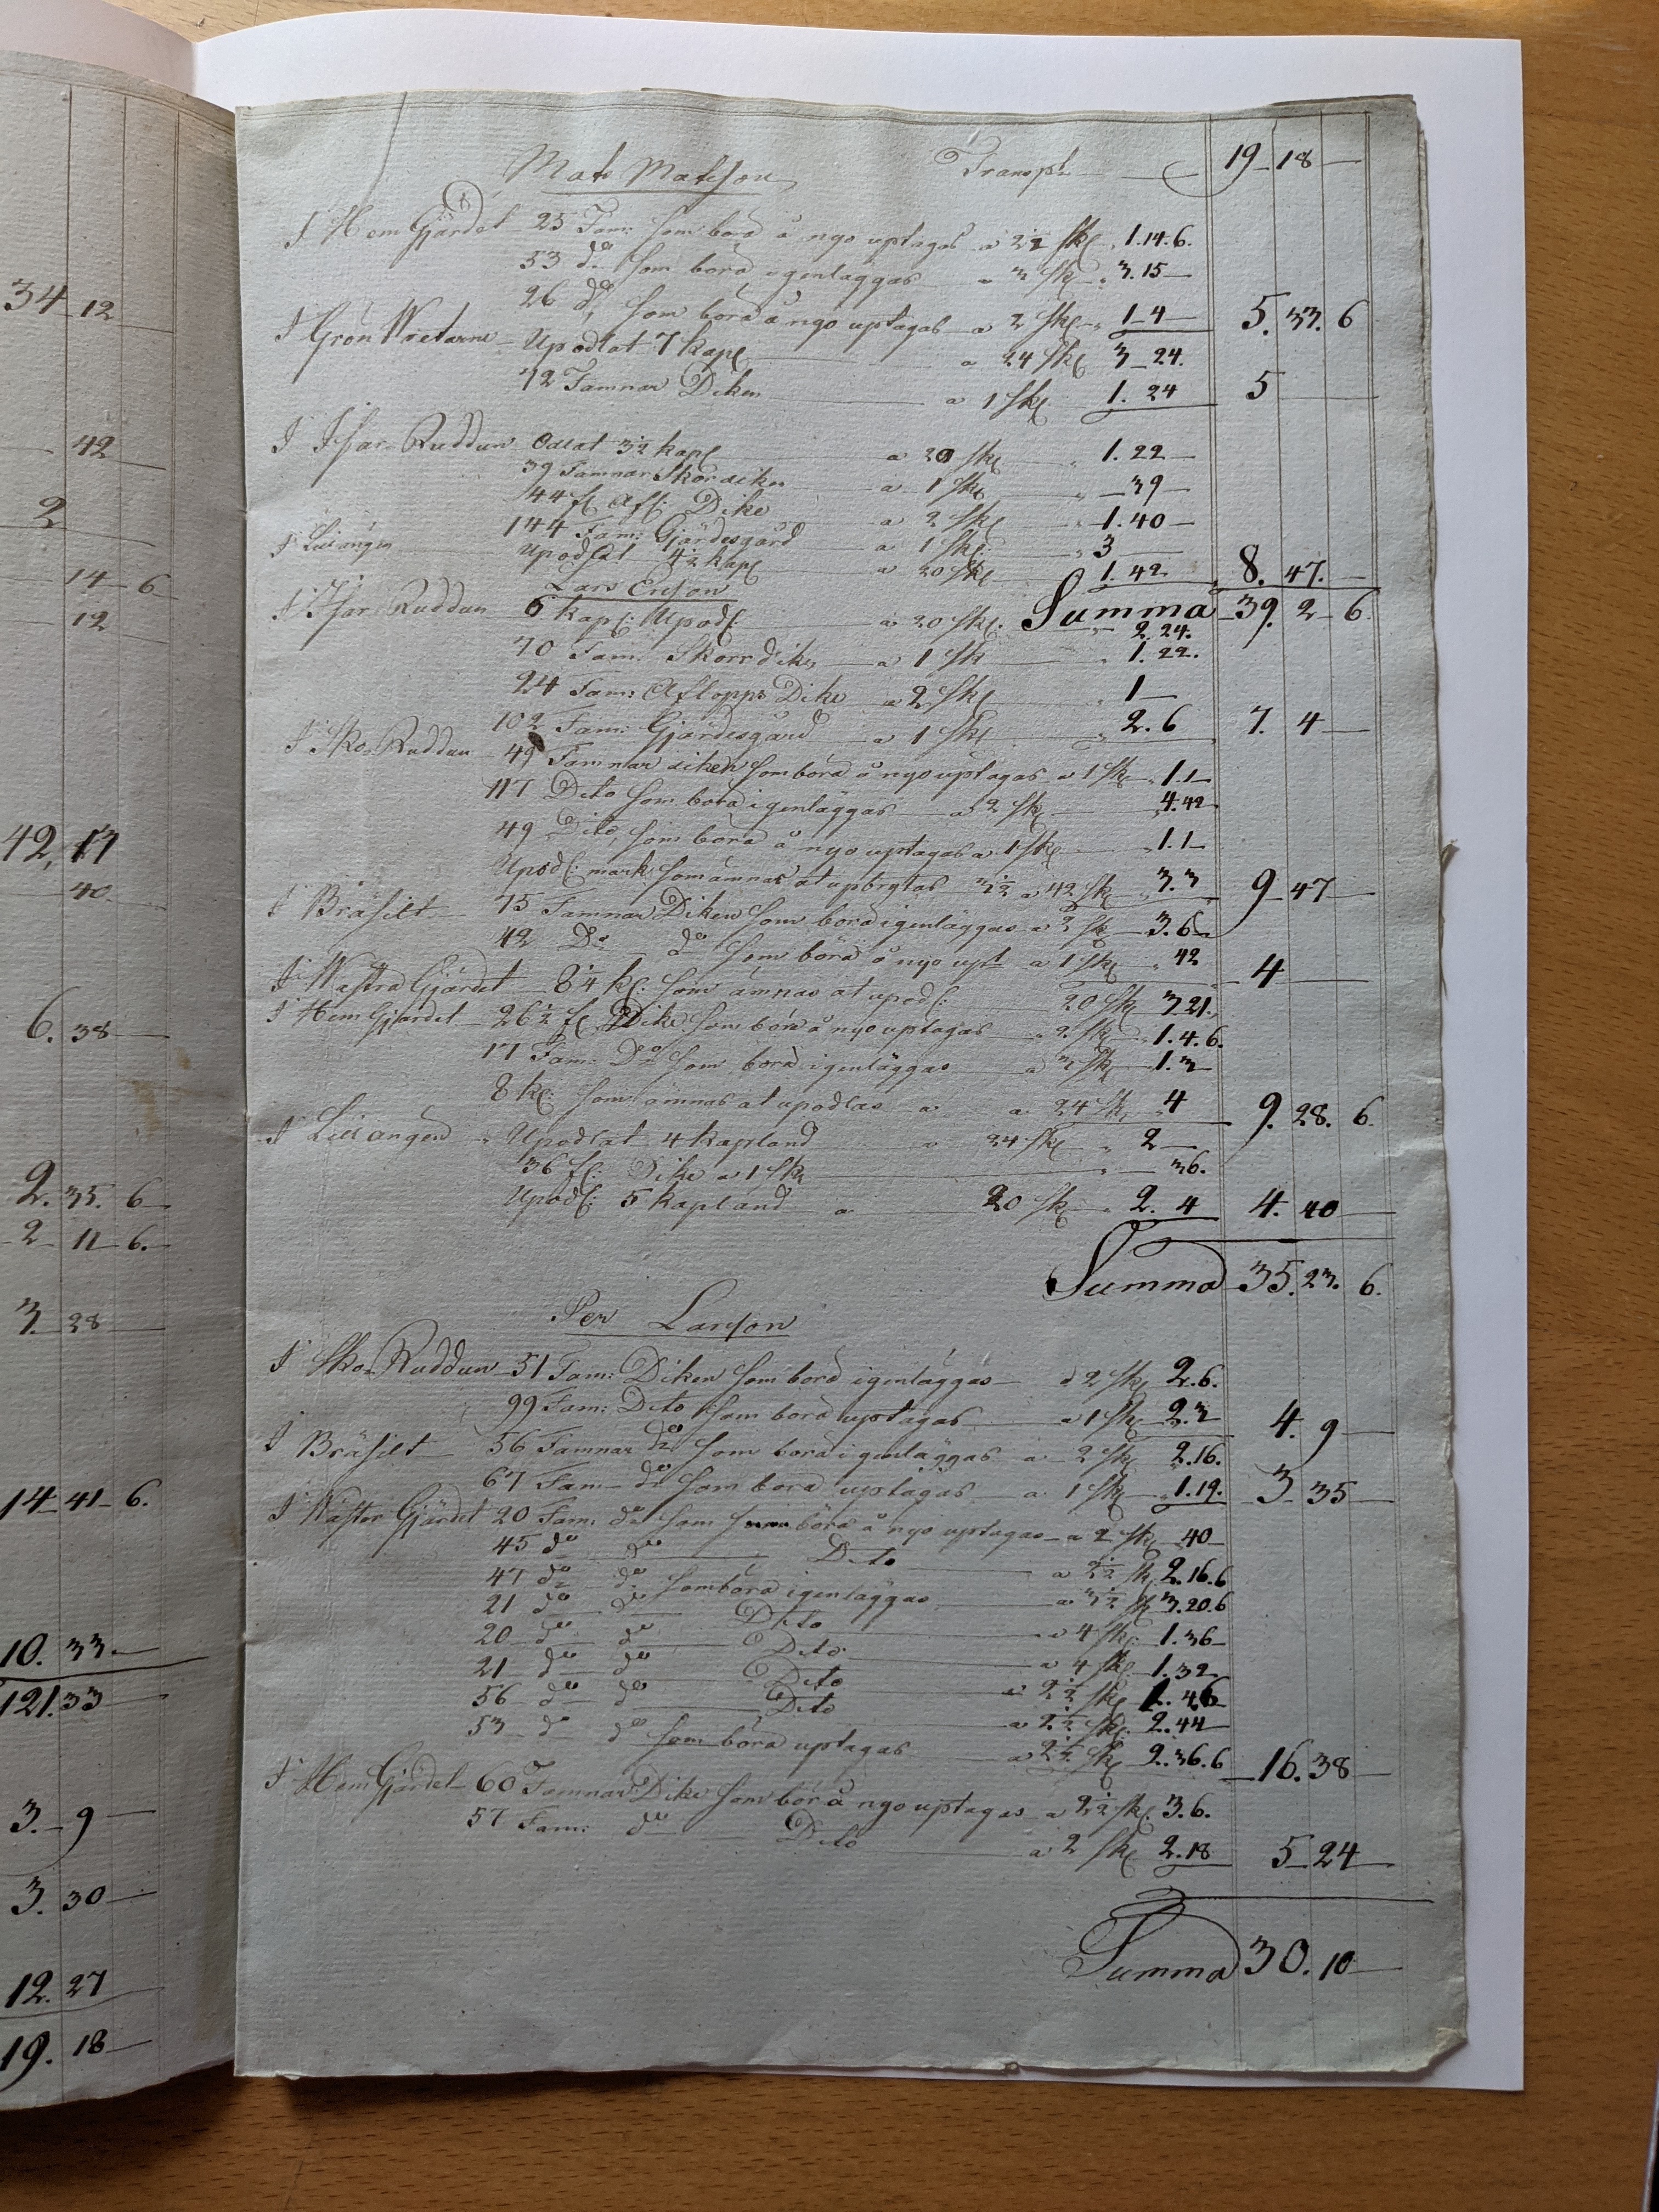 34 12
42
2
14 6
12
42, 17
40.
6. 38
2. 35. 6
2 11 6.
3. 28
14 41 6.
10. 33
121. 33
3. 9
3. 30
12. 27
19. 18
Mats Matsson Transpt 19 18
I Hem Gjärdet 25 Fam: som böra å nyo uptagas a 2½ sk 1.14.6.
53 do som böra igenläggas a 3 sk 3.15
26 do, som böra å nyo uptagas a 2 sk 1 4 5. 33. 6
I Grön Wretarne Upodlat 7 kapl a 24 sk 3 24.
72 Famnar Diken a 1 sk 1. 24 5
I Ifvar Ruddun Odlat 3½ kapl a 20 sk 1. 22
39 Famnar Skördiken a 1 sk 39
44 f Aff: Dike a 2 sk 1. 40
144 Fam: Gjärdesgård a 1 sk 3
I Lillängen Upodlat 4½ kapl a 20 sk 1. 42 8. 47.
Lars Ersson Summa 39. 2 6.
I Ifvar Ruddun 6 kapl: Upodl: a 20 sk. 2. 24.
70 Fam: Skörrdiken a 1 sk 1. 22.
24 Fam: Aflopps Dike a 2 sk 1
102 Fam: Gjärdesgård a 1 sk 2. 6 7. 4
I Sko Ruddun 49 Famnar diken som böra å nyo uptagas a 1 sk 1. 1
117 Dito som böra igenläggas a 2 sk 4. 42
49 Dito, som böra å nyo uptagas a 1 sk 1. 1
Upodl: mark som ämnas at upbrytas 3½ a 42 sk 3. 3 9 47
I Bräsilt 75 Famnar Diken som böra igenläggas a 2 sk 3. 6
42 Do do som böra å nyo upt a 1 sk 42 4
I Wästra Gjärdet 8¼ kl: som ämnas at upodl: 20 sk 3 21.
I Hem Gjärdet 26½ f Dike som böra å nyo uptagas 2 sk 1. 4. 6.
17 Fam: Do som böra igenläggas a 3 sk 1. 3
8 kl: som ämnas at upodlas a 24 sk 4 9. 28. 6
I Lillängen Upodlat 4 kapland a 24 sk 2
36 f: Dike a 1 sk 36.
Upodl: 5 kapland a 20 sk 2. 4 4. 40
Summa 35. 23. 6.
Per Larsson
I Sko Ruddun 51 Fam: Diken som böra igenläggas a 2 sk 2. 6.
99 Fam: Dito som böra uptagas a 1 sk 2. 3 4. 9
I Bräsilt 56 Famnar do som böra igenläggas a 2 sk 2. 16.
67 Fam do som böra uptagas a 1 sk 1. 19. 3 35
I Wäster Gjärdet 20 Fam: do som böra å nyo uptagas a 2 sk 40
45 do do Dito a 2½ sk 2. 16. 6
47 do do som böra igenläggas a 3½ sk 3. 20. 6
21 do do Dito a 4 sk: 1. 36
20 do do Dito a 4 sk: 1. 32
21 do do Dito a 2½ sk 1. 4. 6
56 do do Dito a 2½ sk: 2. 44
53 do do som böra uptagas a 2½ sk 2. 36. 6 16. 38
I Hem Gjärdet 60 Famnar Dike som bör å nyo uptagas a 2½ sk: 3. 6.
57 Fam: do Dito a 2 sk 2. 18 5 24
Summa 30. 10